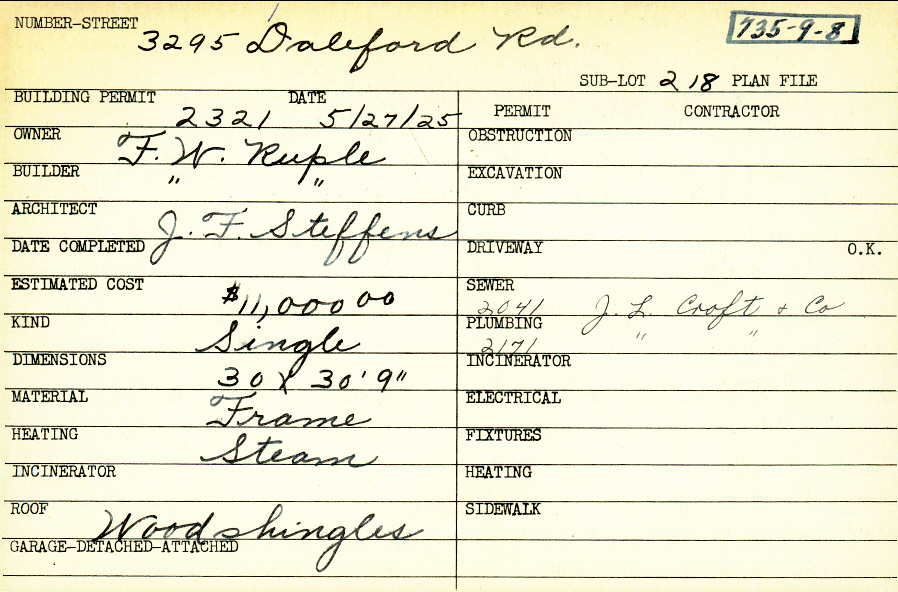 NUMBER-STREET 3295 Daleford Rd. 735-9-8
SUB-LOT 218 PLAN FILE
BUILDING PERMIT 2321 DATE 5/27/25
OWNER F. W. Ruple
BUILDER " "
ARCHITECT J. F. Steffens
DATE COMPLETED
ESTIMATED COST $11,000 00
KIND Single
DIMENSIONS 30 X 30'9"
MATERIAL Frame
HEATING Steam
INCINERATOR
ROOF Wood shingles
GARAGE-DETACHED-ATTACHED
PERMIT CONTRACTOR
OBSTRUCTION
EXCAVATION
CURB
DRIVEWAY O.K.
SEWER 2041 J. L. Croft & Co
PLUMBING 2171 " "
INCINERATOR
ELECTRICAL
FIXTURES
HEATING
SIDEWALK